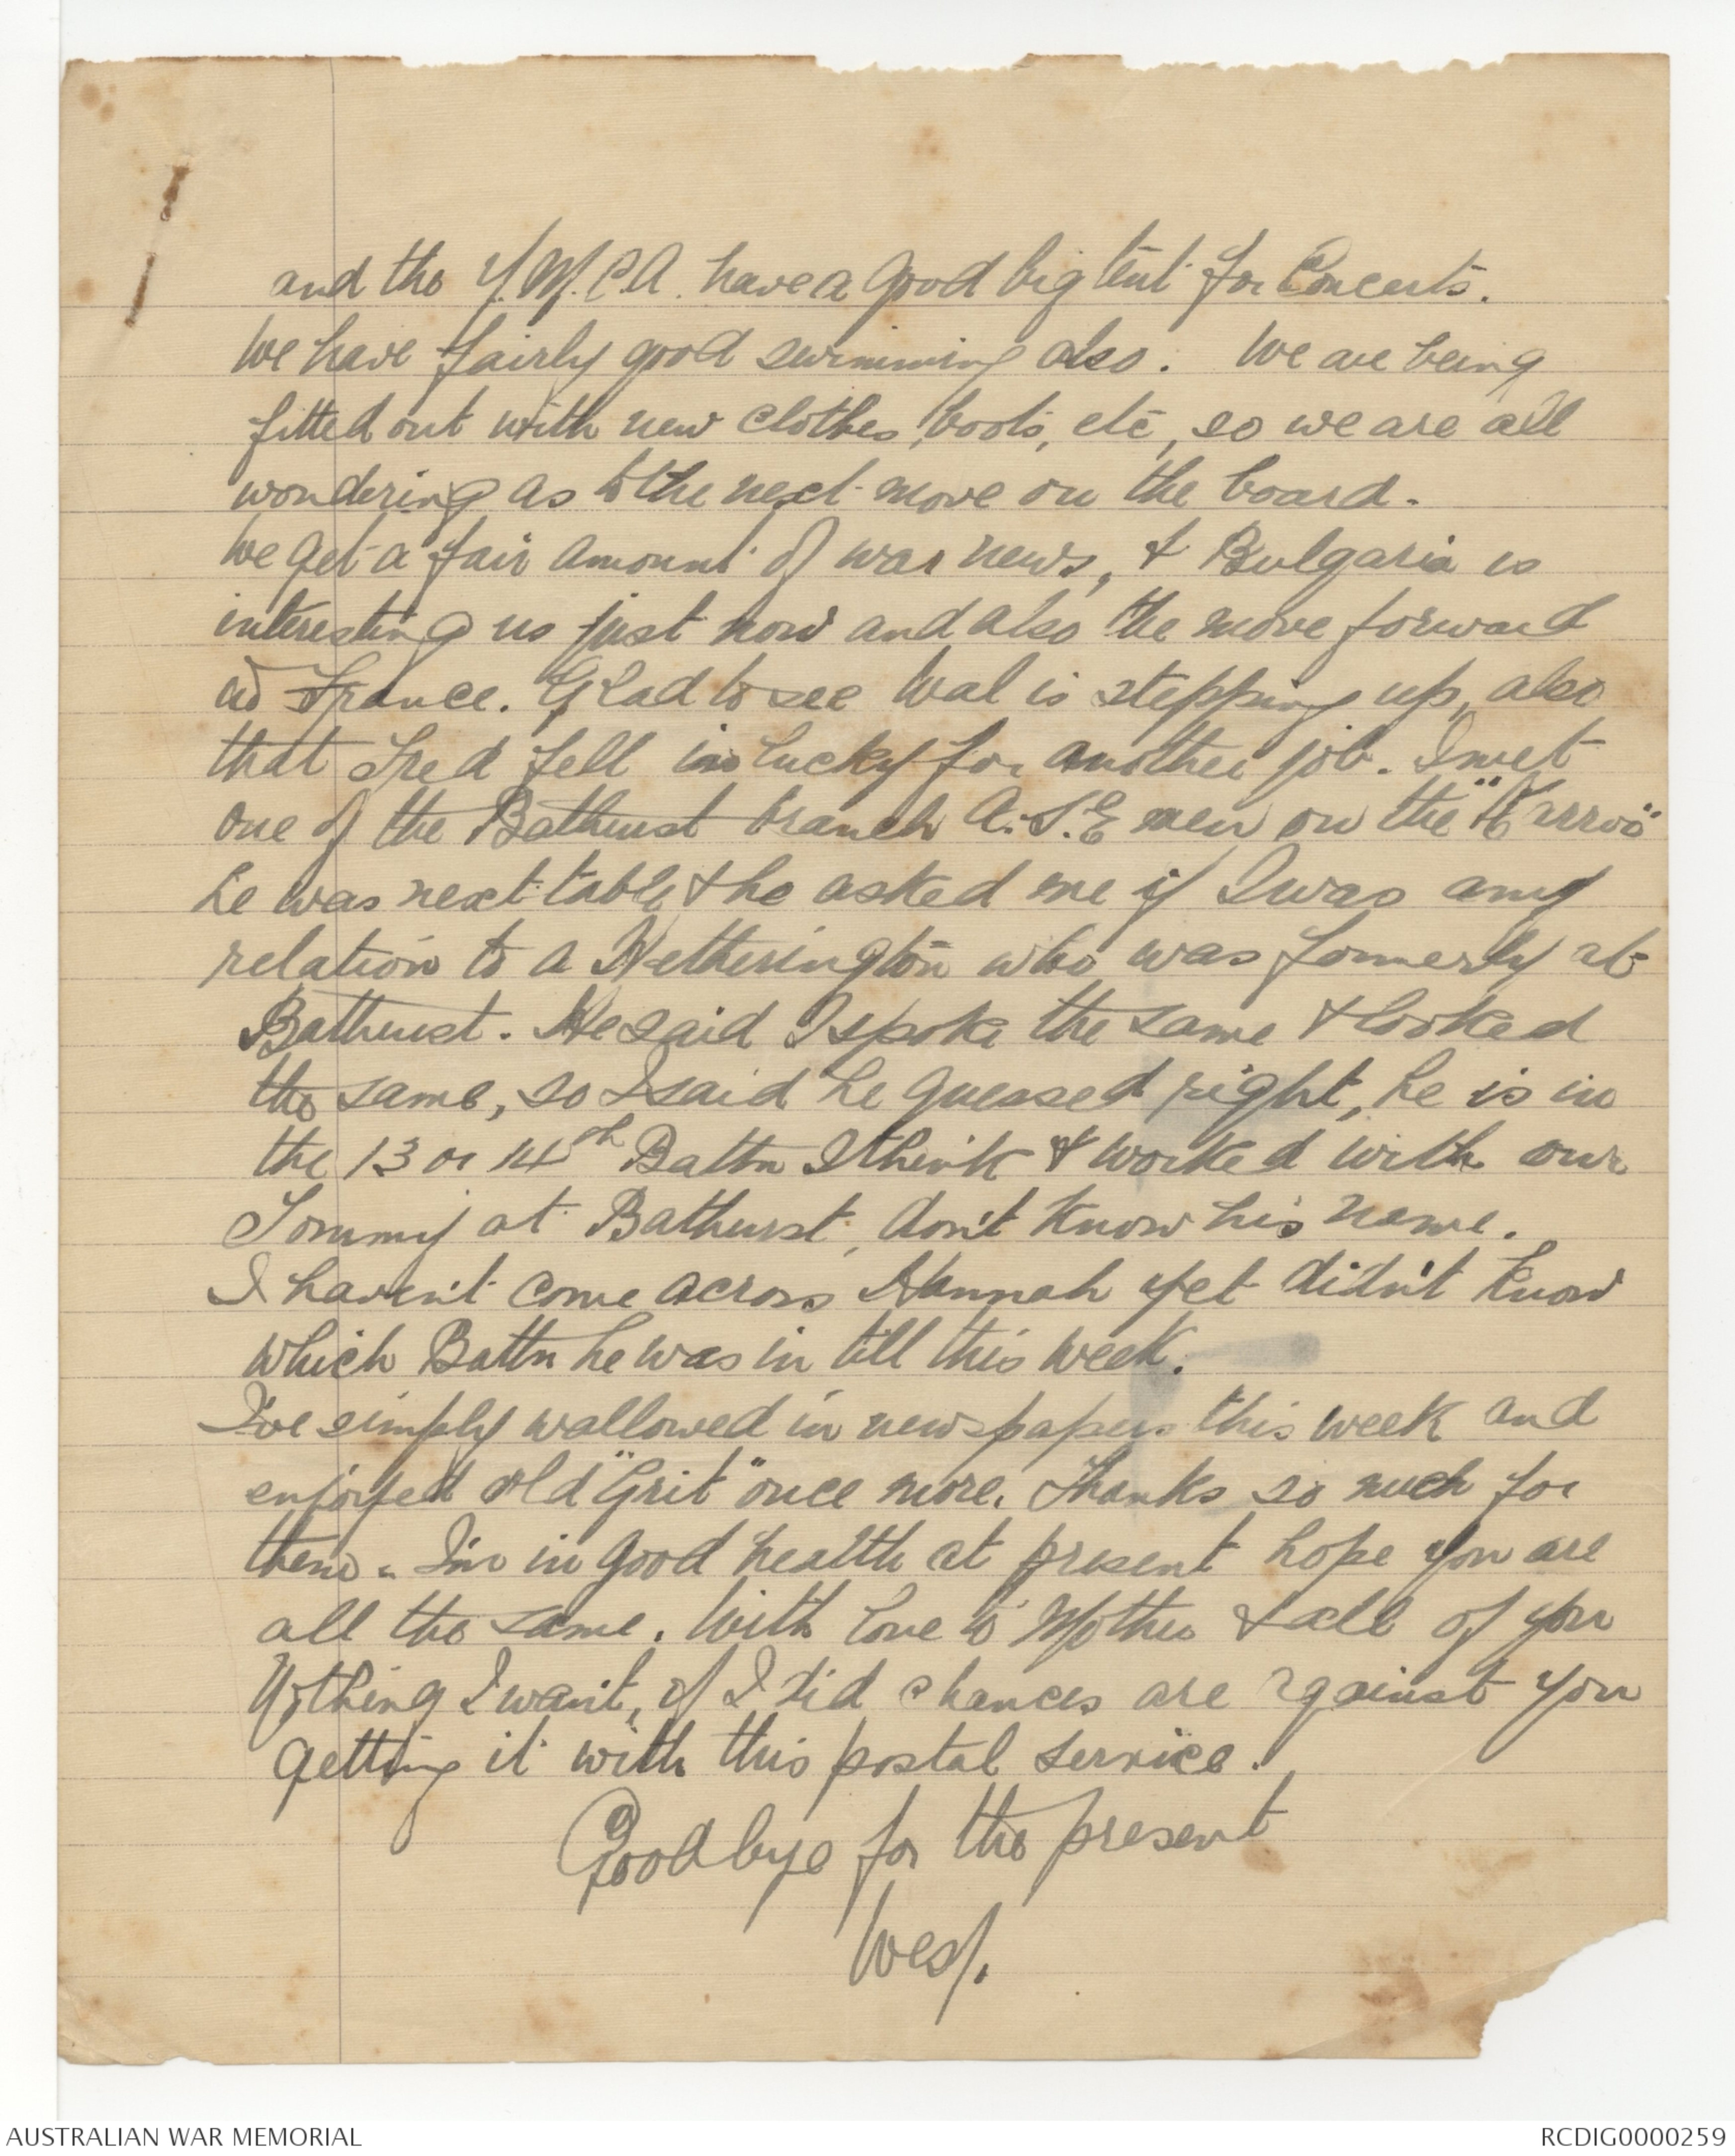 and the Y.M.C.A. have a good big tent for Concerts.
We have fairly good swimming also. We are being
fitted out with new clothes, boots, etc, so we are all
wondering as to the next move on the board.
We get a fair amount of war news, & Bulgaria is
interesting us just now and also the move forward
in France. Glad to see Wal is stepping up, also
that Fred fell in lucky for another job. I met
one of the Bathurst branch A.S.E men on the "Karroo"
he was next table & he asked me if I was any
relation to a Hetherington who was formerly at
Bathurst. He said I spoke the same & looked
the same, so I said he guessed right, he is in
the 13 or 14th Battn I think & worked with our
Tommy at Bathurst, don't know his name.
I haven't come across Hannah yet didn't know
which Battn he was in till this week.
I've simply wallowed in newspapers this week and
enjoyed old "Grit" once more. Thanks so much for
them. I'm in good health at present hope you are
all the same. With love to Mother & all of you
Nothing I want, if I did chances are against you
getting it with this postal service.
Goodbye for the present
Wes/.
AUSTRALIAN WAR MEMORIAL
RCDIG0000259